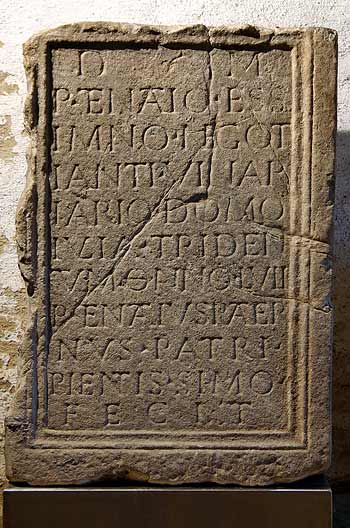 D M
P TENATIO · ESS
IMNO · NEGOT
IANTI VINAR
IARIO · DOMO
IVLIA · TRIDEN
TVM ANNO LVII
P TENATIVS PATER
NVS · PATRI ·
PIENTIS · SIMO
FECIT